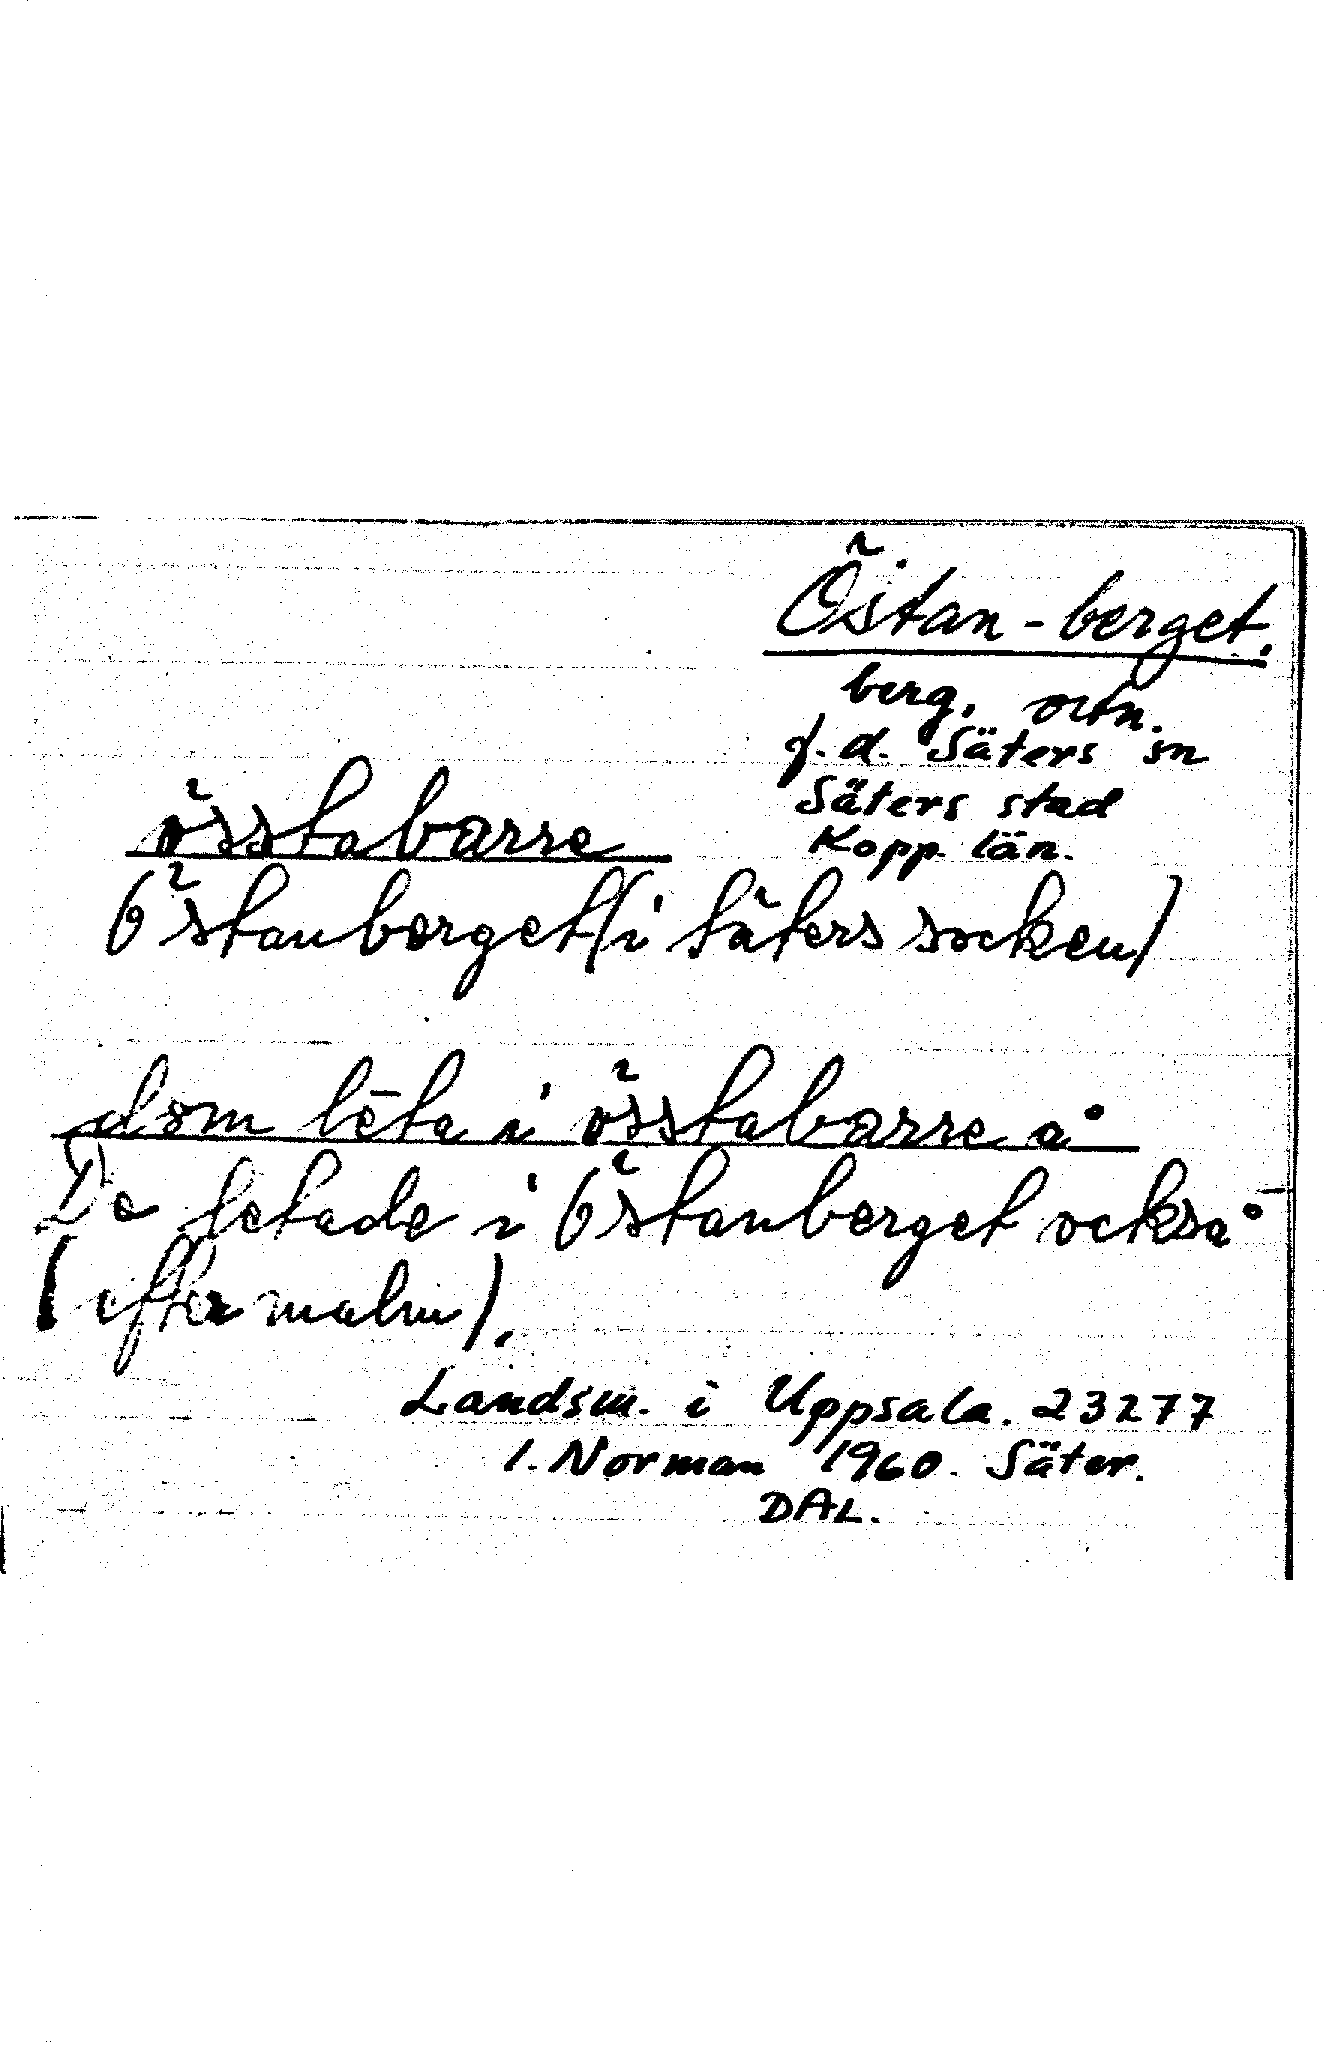 Östan-berget.
berg, ortn.
f.d. Säters sn
Säters stad
Kopp. län.
össtabarre
Östanberget (i Säters socken)
dom lēta i össtabarre å
De letade i Östanberget också
(efter malm).
Landsm. i Uppsala. 23277
I. Norman 1960. Säter.
DAL.